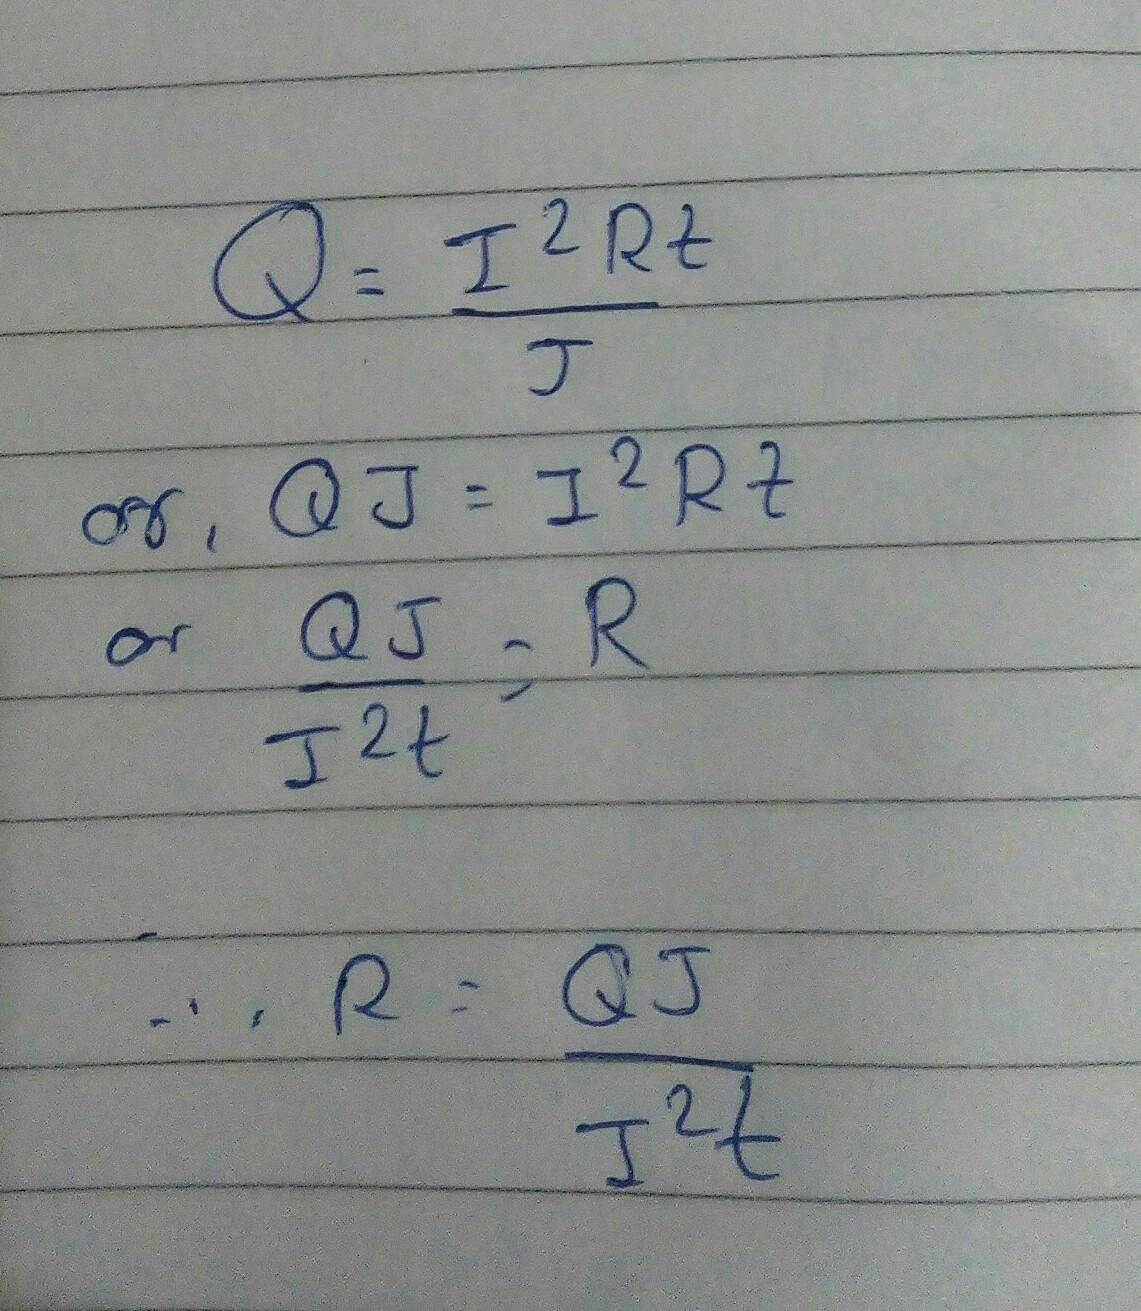 Q = I²Rt / J
or, QJ = I²Rt
or QJ / I²t = R
∴, R = QJ / I²t